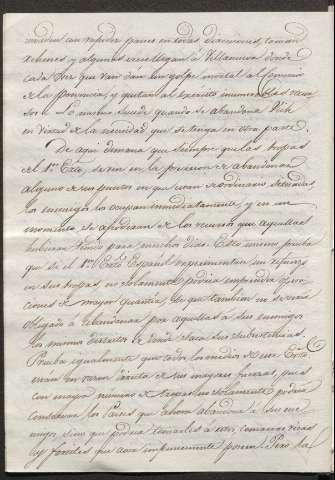 con rapidez pasan en todas direcciones, toman
y algunas veces llegan á Villanueva donde
cada vez que van dan un golpe mortal al
de la Provincia, y quitan al Exército inmensos
Lo mismo sucede quando se abandona Vich
en virtud de la necesidad que se tenga en otra parte.
De aqui dimana que siempre que las tropas
el 1er Exto se ven en la precision de abandonar
alguno de sus puntos en que estan de ordinario
los enemigos lo ocupan inmediatamente, y en un
momento se apoderan de los recursos que aquellas
hubieran tenido para muchos dias. Esto mismo prueba
que si el 1er Exto Español experimentára un refuerzo
en sus tropas, no solamente podria emprender
ciones de mayor quantía, sin que tambien no se veria
obligado á abandonar por aquellas á sus enemigos
los mismos distritos de donde saca sus subsistencias.
Prueba igualmente que todos los medios de este Exto
estan en razon directa de sus mayores fuerzas, pues
con mayor numero de tropas no solamente podria
conservar los Paises que ahora abandona á los ene
migos, sino que podria tomarles á
y fertiles que aora impunemente poseen. Pero